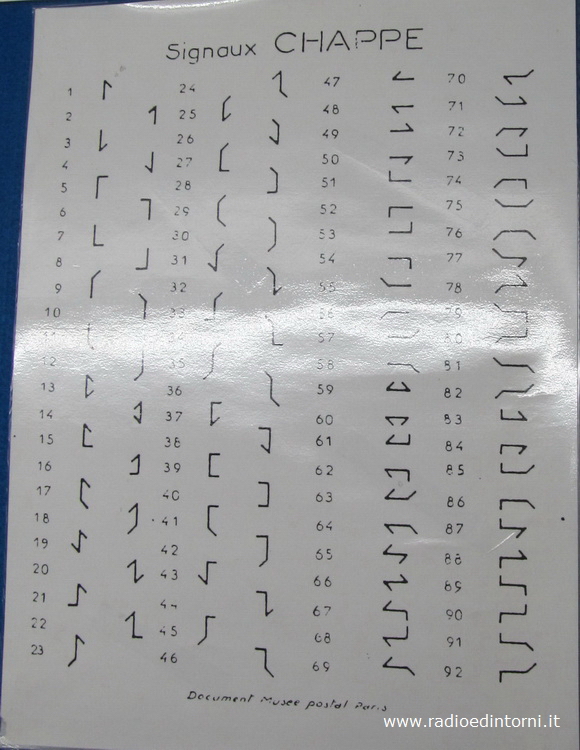 Signaux CHAPPE
1
2
3
4
5
6
7
8
9
10
11
12
13
14
15
16
17
18
19
20
21
22
23
24
25
26
27
28
29
30
31
32
33
34
35
36
37
38
39
40
41
42
43
44
45
46
47
48
49
50
51
52
53
54
55
56
57
58
59
60
61
62
63
64
65
66
67
68
69
70
71
72
73
74
75
76
77
78
79
80
81
82
83
84
85
86
87
88
89
90
91
92
Document Musee postal Paris
www.radioedintorni.it